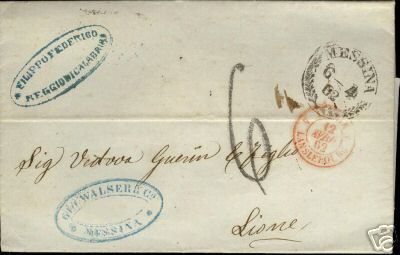 FILIPPO FEDERICO
REGGIO DI CALABRIA
MESSINA
6
62
6
12
62
LANSLEBOURG
Sig Vedova Guérin & Figlio
GEO. WALSER & CO.
MESSINA
Lione